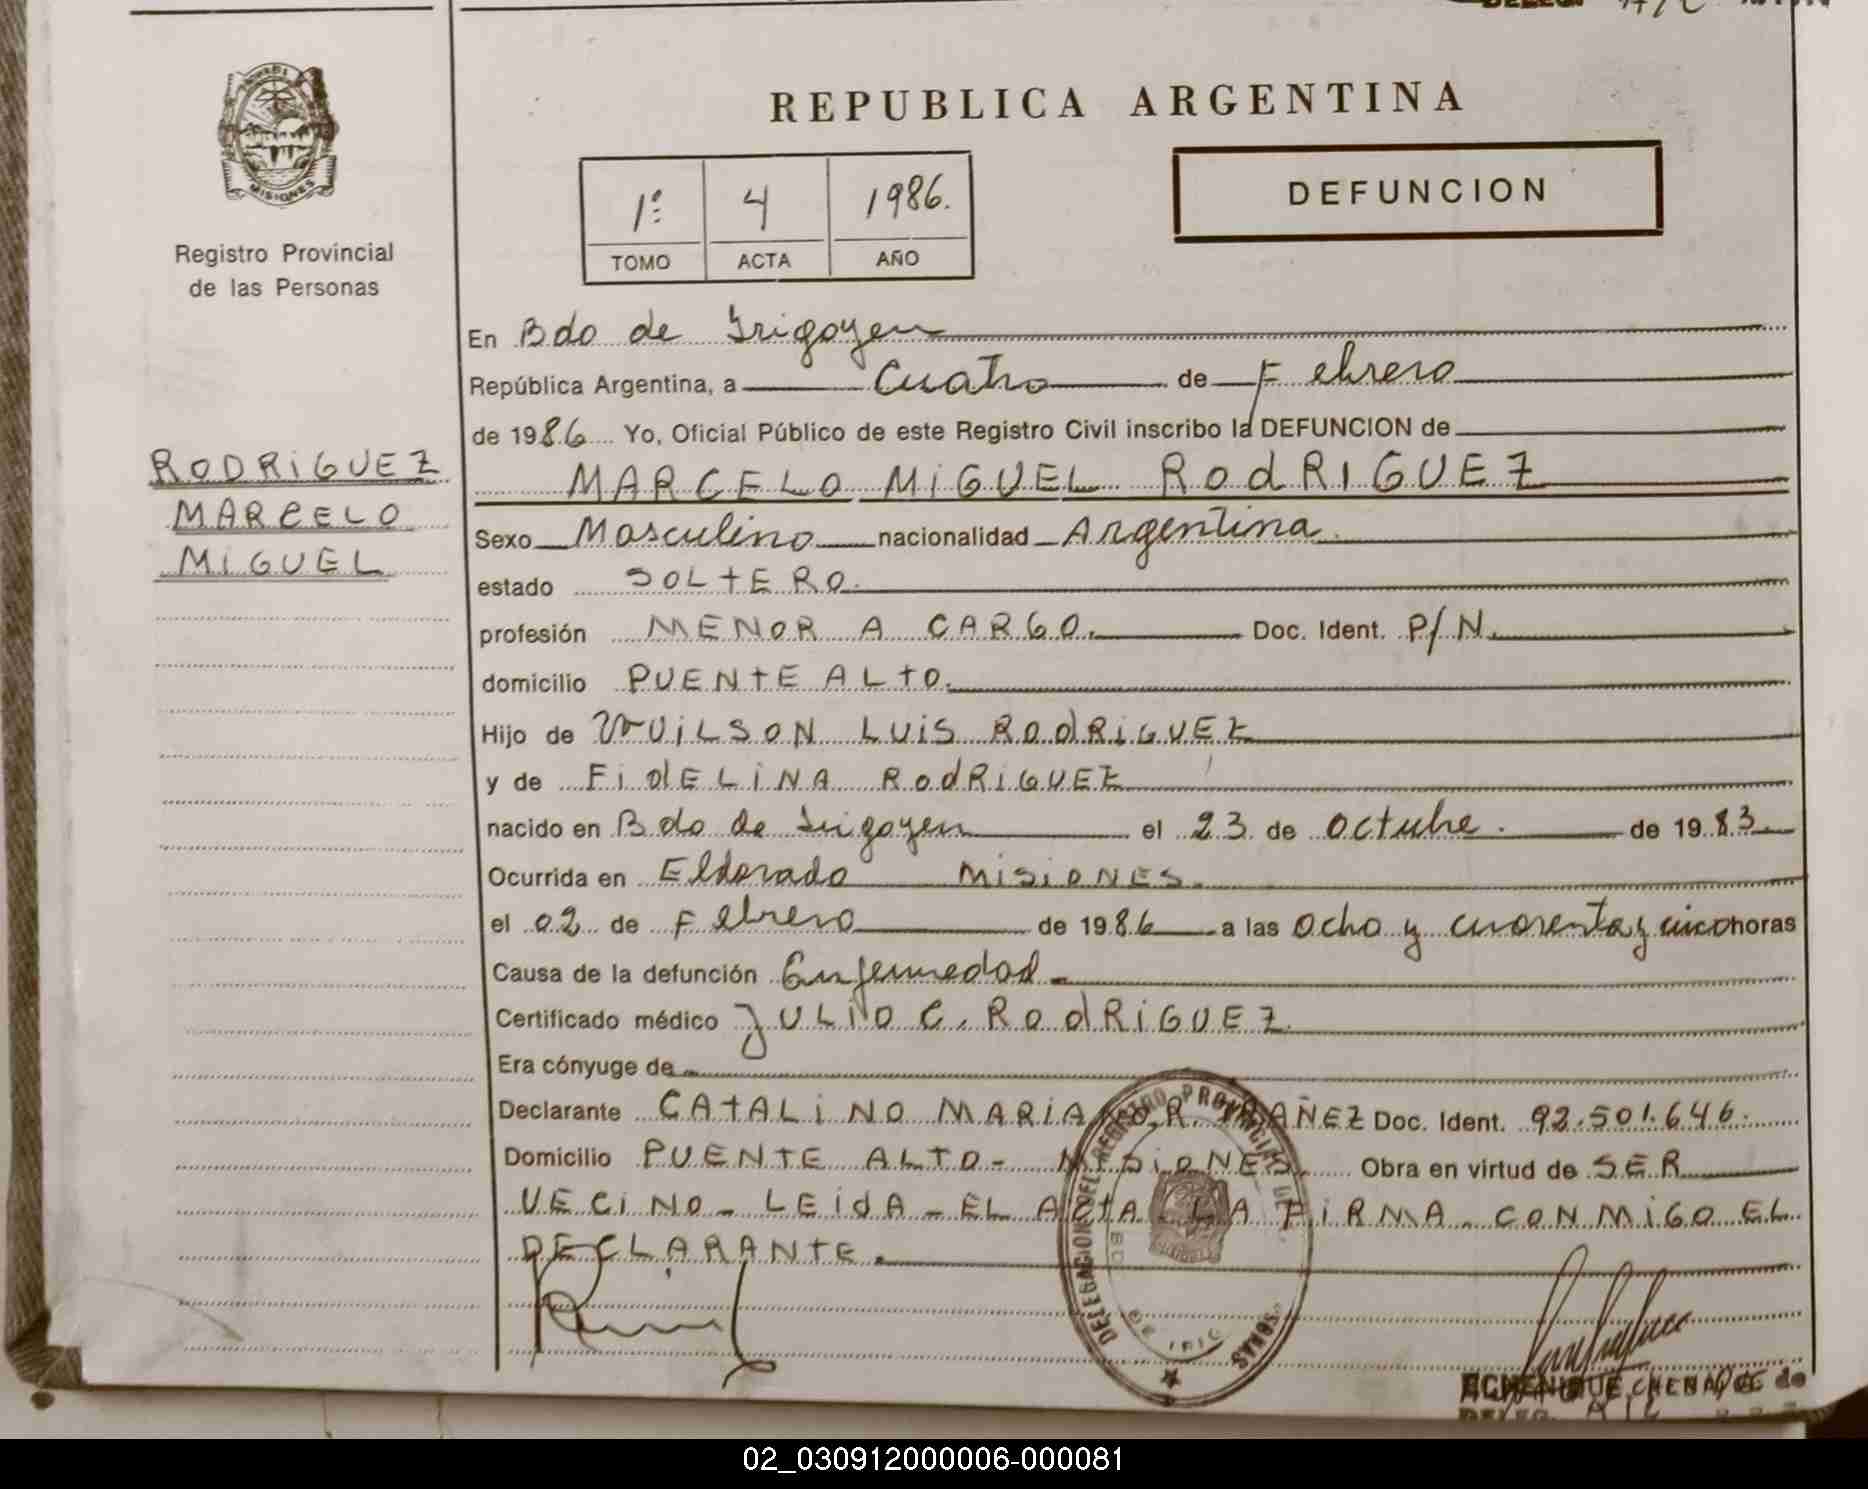 MISIONES
Registro Provincial
de las Personas
RODRIGUEZ
MARCELO
MIGUEL
REPUBLICA ARGENTINA
1º 4 1986.
TOMO ACTA AÑO
DEFUNCION
En Bdo de Irigoyen
República Argentina, a cuatro de Febrero
de 1986 Yo, Oficial Público de este Registro Civil inscribo la DEFUNCION de
MARCELO MIGUEL RODRIGUEZ
Sexo Masculino nacionalidad Argentina.
estado SOLTERO.
profesión MENOR A CARGO. Doc. Ident. P/N.
domicilio PUENTE ALTO.
Hijo de WUILSON LUIS RODRIGUEZ
y de FIDELINA RODRIGUEZ
nacido en Bdo de Irigoyen el 23 de octubre. de 1983.
Ocurrida en Eldorado MISIONES.
el 02 de Febrero de 1986 a las ocho y cuarenta y cinco horas
Causa de la defunción Enfermedad
Certificado médico JULIO C. RODRIGUEZ
Era cónyuge de
Declarante CATALINO MARIA Doc. Ident. 92.501.646.
Domicilio PUENTE ALTO - MISIONES. Obra en virtud de SER
VECINO - LEIDA - EL ACTA - LA FIRMA CONMIGO EL
DECLARANTE.
02_030912000006-000081